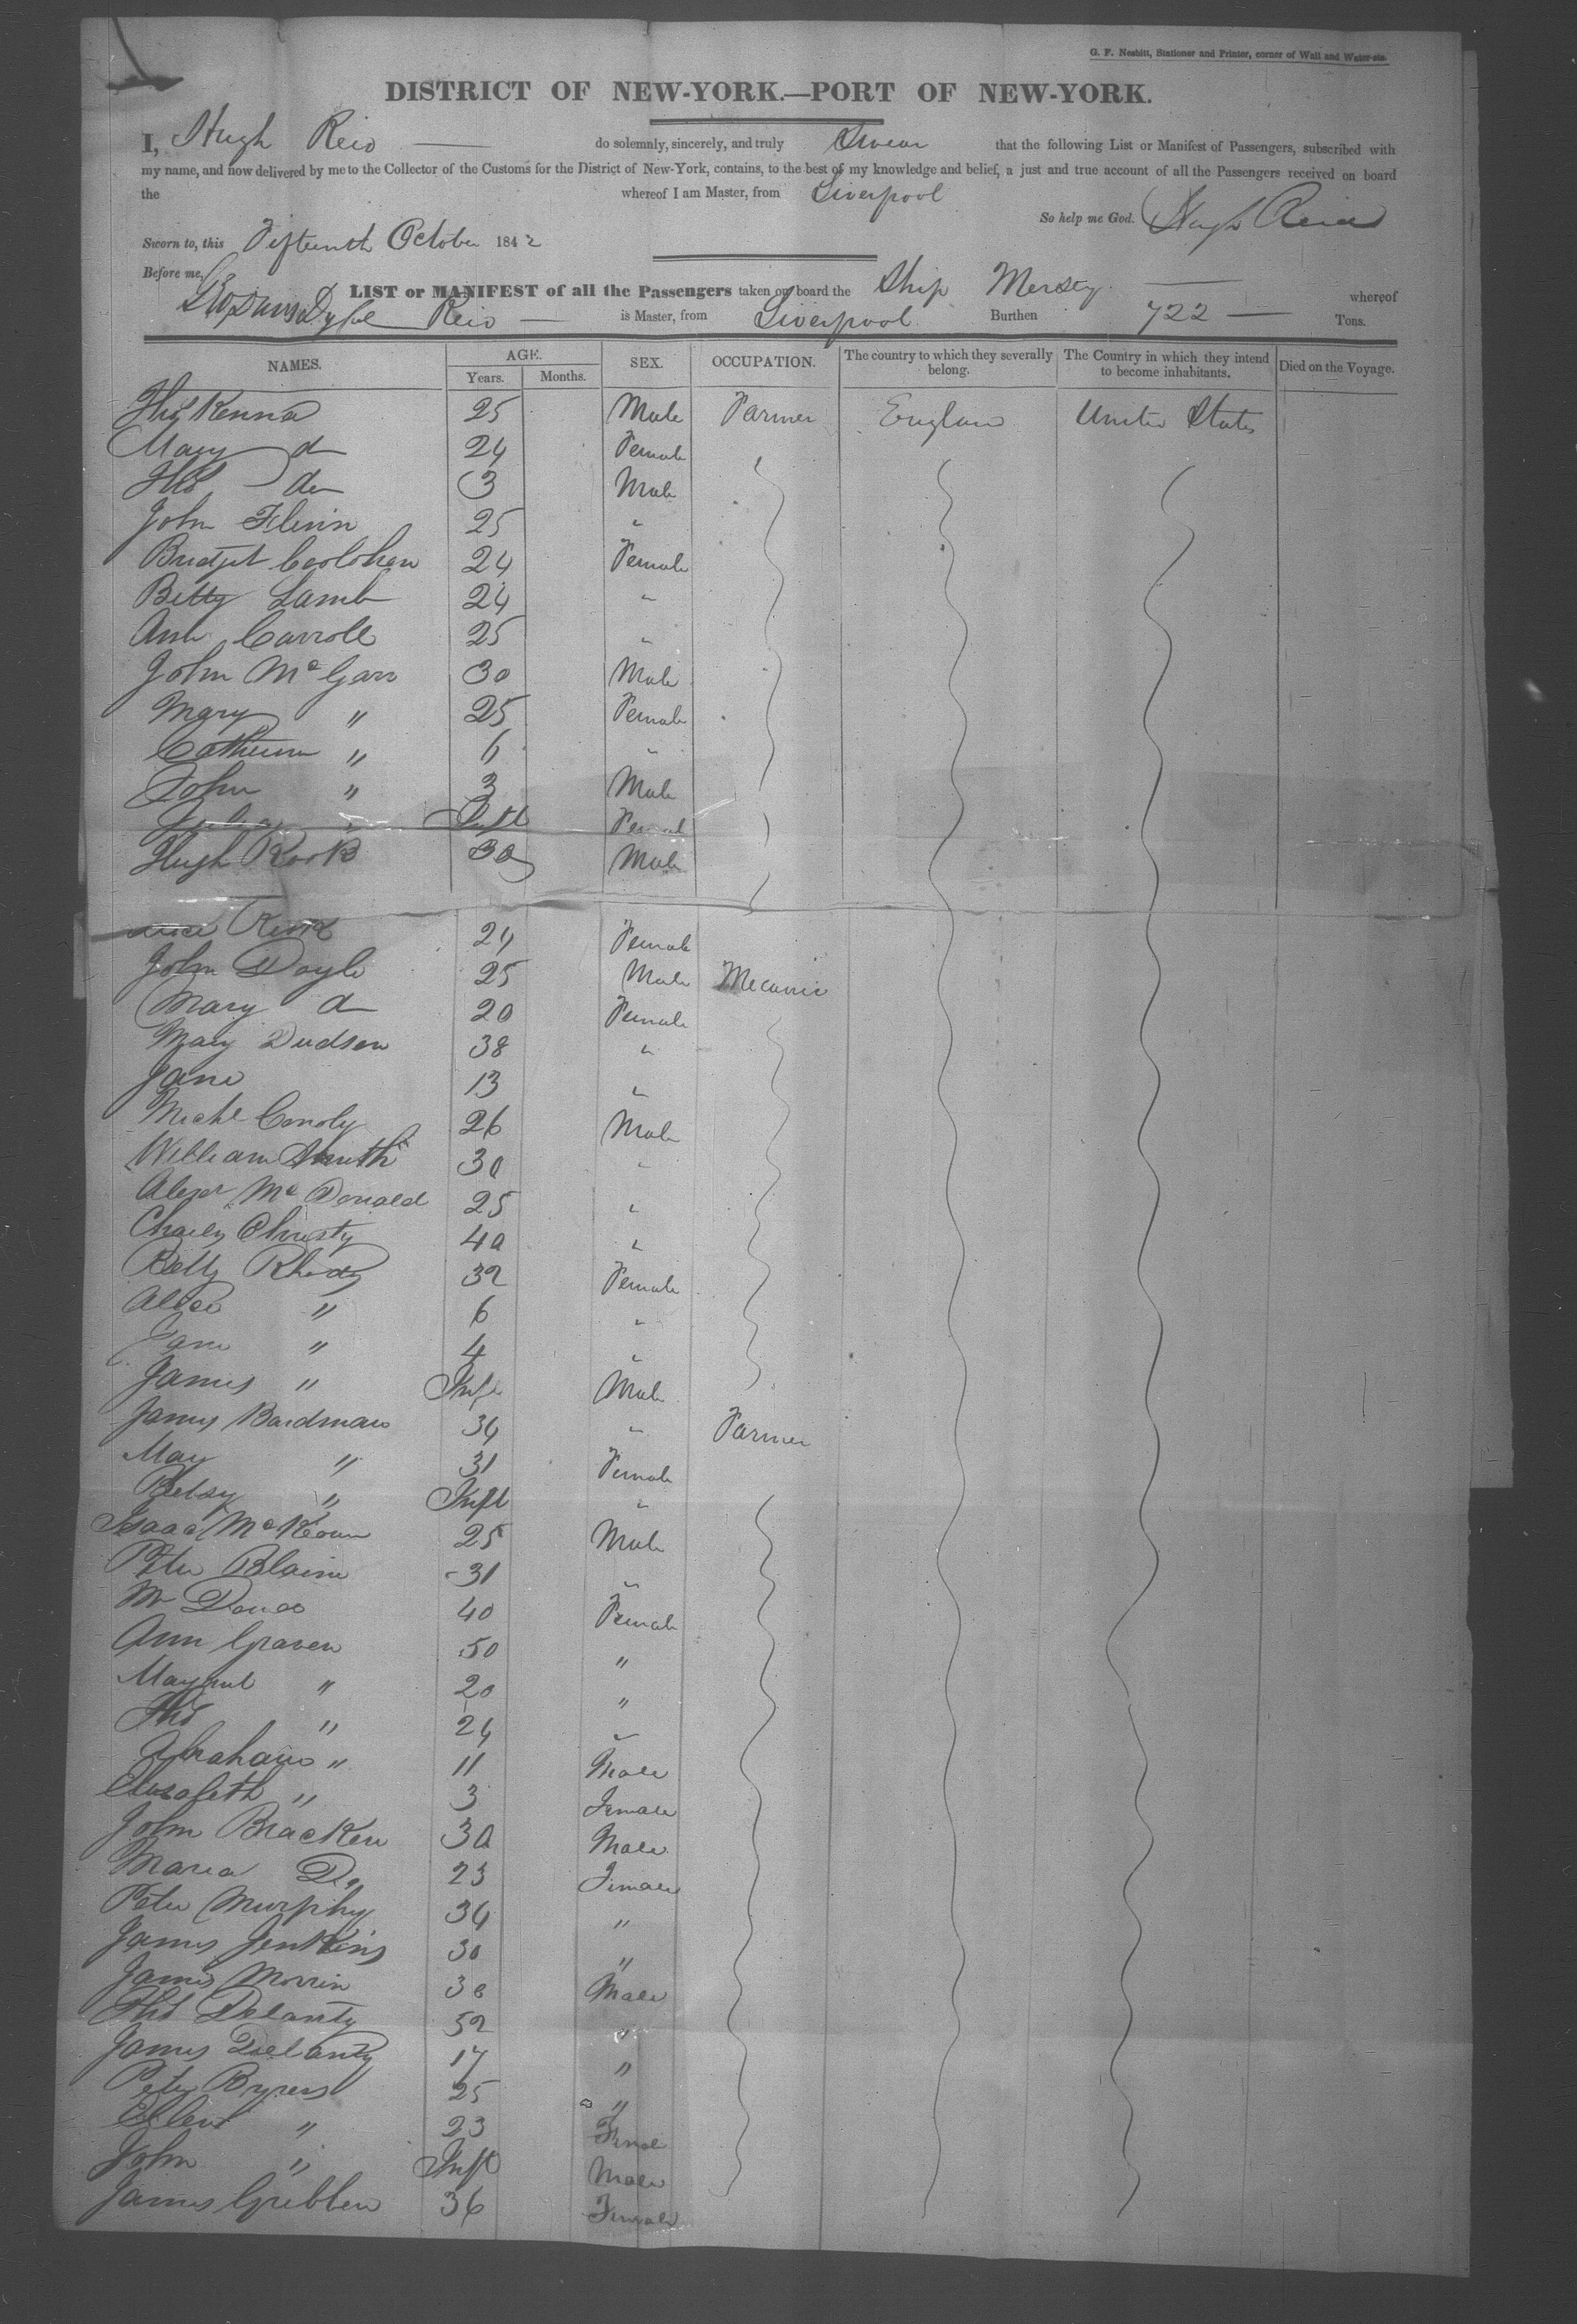 G. F. Nesbitt, Stationer and Printer, corner of Wall and Water-sts.
DISTRICT OF NEW-YORK.—PORT OF NEW-YORK.
I, Hugh Reid do solemnly, sincerely, and truly Swear that the following List or Manifest of Passengers, subscribed with
my name, and now delivered by me to the Collector of the Customs for the District of New-York, contains, to the best of my knowledge and belief, a just and true account of all the Passengers received on board
the whereof I am Master, from Liverpool
So help me God. Hugh Reid
Sworn to, this Fifteenth October 1842
Before me,
LIST or MANIFEST of all the Passengers taken on board the Ship Mersey whereof
Reid is Master, from Liverpool Burthen 722 Tons.
NAMES. AGE. Years. Months. SEX. OCCUPATION. The country to which they severally belong. The Country in which they intend to become inhabitants. Died on the Voyage.
Thos Kenna 25 Male Farmer England United States
Mary do 24 Female
Thos do 3 Male
John 25 "
Bridget 24 Female
Betty Lamb 24 "
Ann Carroll 25 "
John McGarr 30 Male
Mary " 25 Female
Catherine " 6 "
John " 3 Male
Julia " Inft Female
Hugh 30 Male
24 Female
John Doyle 25 Male Mecanic
Mary do 20 Female
Mary Dudson 38 "
Jane 13 "
Michl Conoly 26 Male
William Smith 30 "
Alexr McDonald 25 "
Charley Christy 40 "
Betty 32 Female
Alice " 6 "
Jane " 4 "
James " Inft Male
James Bardman 34 " Farmer
May " 31 Female
Betsy " Inft "
Isaac McKeown 25 Male
Peter Blaine 31 "
40 Female
Ann Graven 50 "
" 20 "
Thos " 24 "
Abraham " 11 Male
Elizabeth " 3 Female
John Bracken 30 Male
Maria Do 23 Female
Peter Murphy 34 "
James Jenkins 30 "
James Morrin 30 Male
Thos Delanty 52 "
James Delanty 17 "
Peter Byrers 25 "
Ellen " 23 Female
John " Inft Male
James Gribben 36 Female